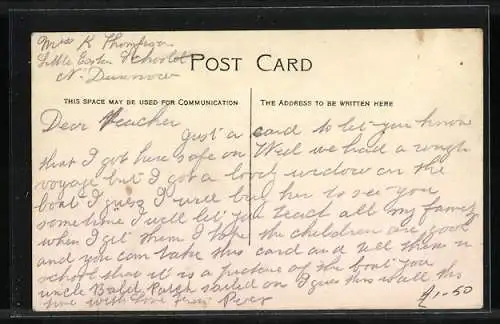 Miss K Thompson
Little Easton School
Nr Dunmow
POST CARD
THIS SPACE MAY BE USED FOR COMMUNICATION
THE ADDRESS TO BE WRITTEN HERE
Dear Teacher
Just a card to let you know
that I got here safe on Wed we had a rough
voyage but I got a good widow on the
boat I guess I will bring her to see you
sometime I will let you teach all my family
when I get them I hope the children are good
and you can take this card and tell them in
school that it is a picture of the boat your
uncle Bald Patch sailed on I guess this is all this
time with love from Percy
A1-50